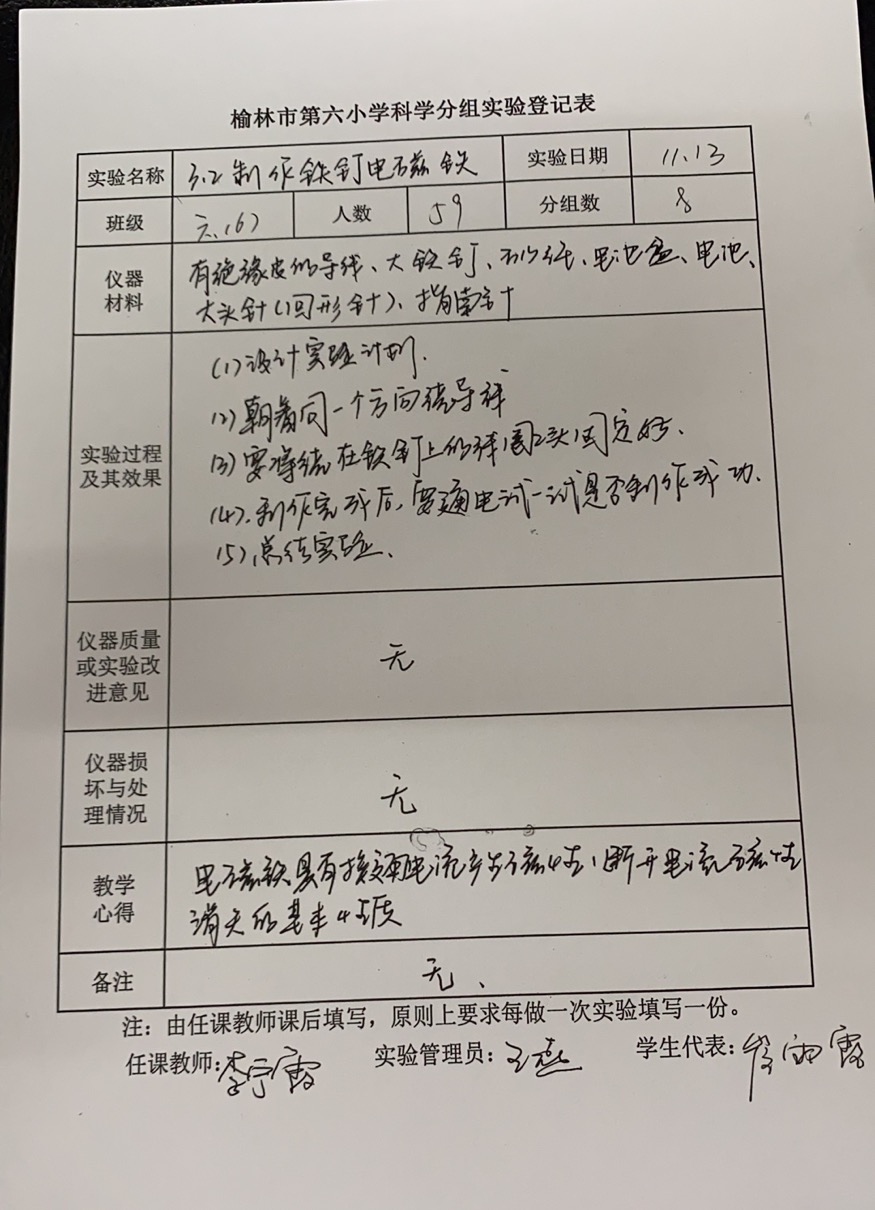 榆林市第六小学科学分组实验登记表
实验名称 3.2制作铁钉电磁铁 实验日期 11.13
班级 六(6) 人数 59 分组数 8
仪器材料 有绝缘皮的导线、大铁钉、砂纸、电池盒、电池、
大头针(回形针)、指南针
实验过程及其效果
(1)设计实验计划.
(2)朝着同一个方向绕导线
(3)要将绕在铁钉上的线圈2头固定好、
(4).制作完成后,要通电试一试是否制作成功.
(5)总结实验、
仪器质量或实验改进意见 无
仪器损坏与处理情况 无
教学心得 电磁铁具有接通电流产生磁性,断开电流磁性
消失的基本性质
备注 无、
注:由任课教师课后填写,原则上要求每做一次实验填写一份。
任课教师:李宁霞 实验管理员:王燕 学生代表:雨霞